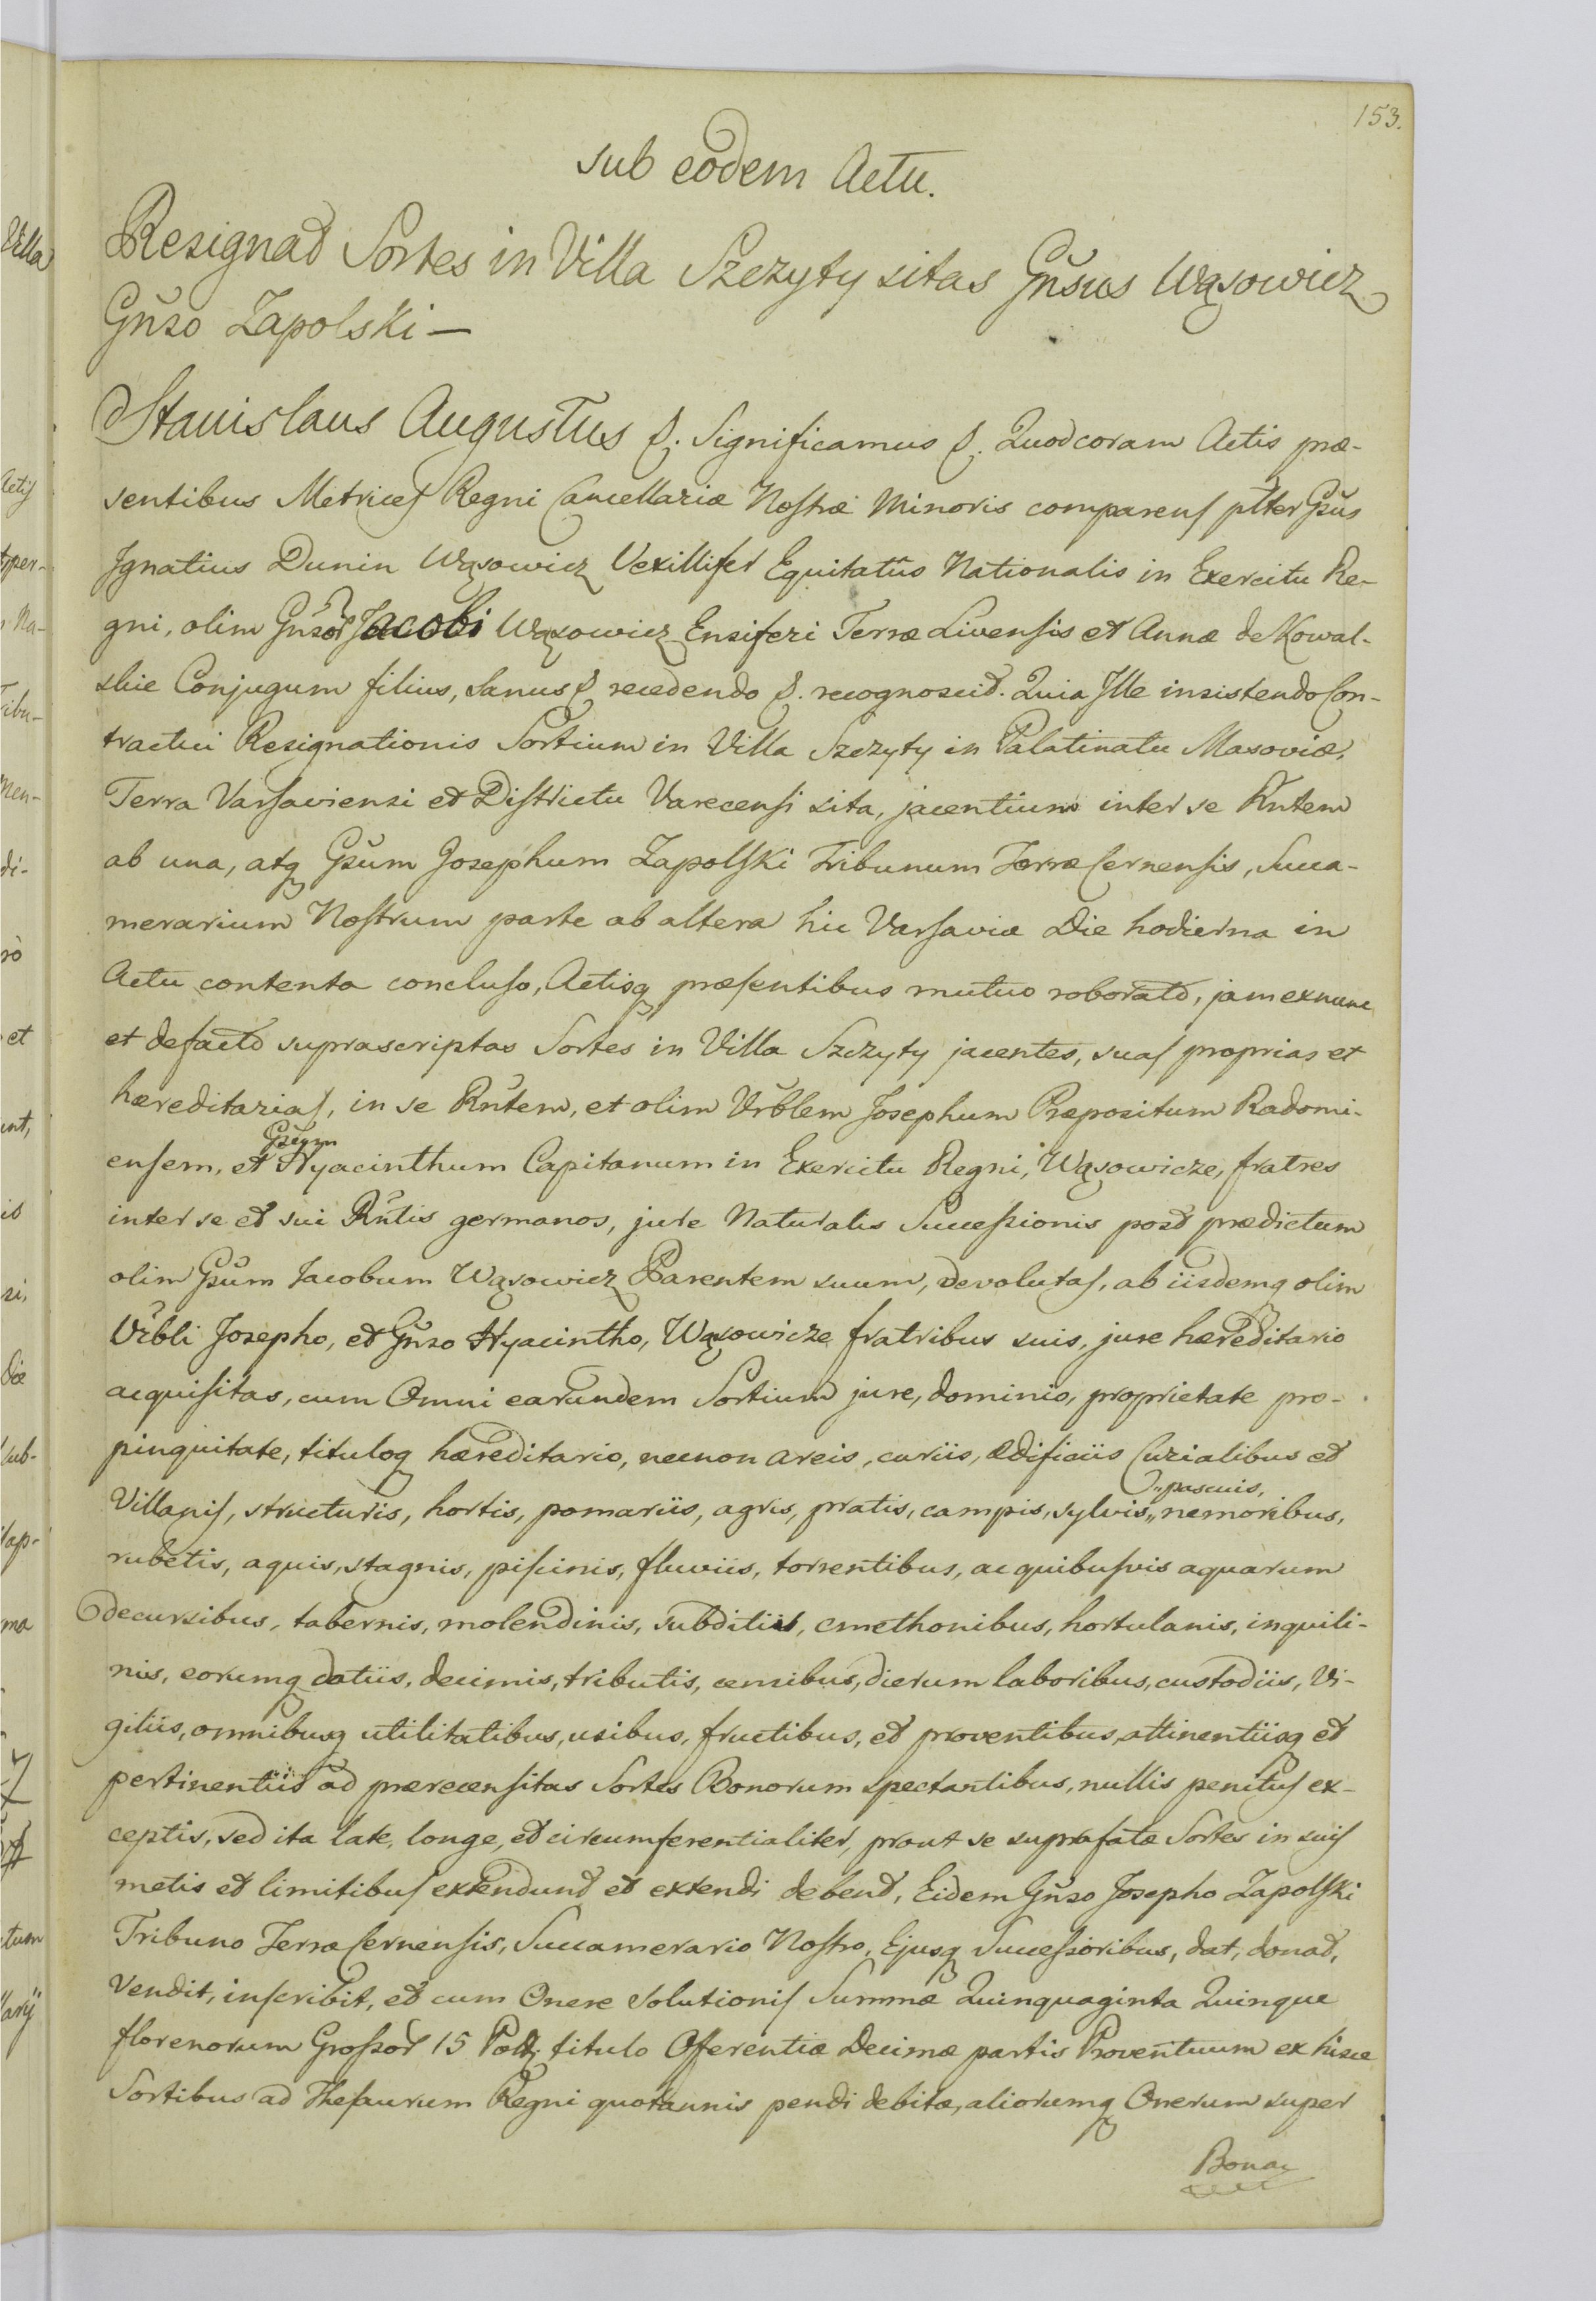 153.
sub eodem Actu.
Resignat Sortes in Villa Szczyty sitas Gn̆sus Wąsowicz
Gn̆so Zapolski —
Stanislaus Augustus &. Significamus &. Quod coram Actis præ-
sentibus Metrices Regni Cancellariæ Nostræ Minoris comparens plter Gsŭs
Ignatius Dunin Wąsowicz Vexillifer Equitatûs Nationalis in Exercitu Re-
gni, olim Gn̆sor Jacobi Wąsowicz Ensiferi Terræ Livensis et Annæ de Kowal-
skie Conjugum filius, sanus & recedendo &. recognoscit. Quia Ille insistendo Con-
tractui Resignationis Sortium in Villa Szczyty in Palatinatu Masoviæ,
Terra Varsaviensi et Districtu Varecensi sita, jacentium inter se Rn̆tem
ab una, atq Gsŭm Josephum Zapolski Tribunum Terræ Cernensis, Succa-
merarium Nostrum parte ab altera hic Varsaviæ Die hodierna in
Actu contenta concluso, Actisq præsentibus mutuo roborato, jam ex nunc
et defacto suprascriptas Sortes in Villa Szczyty jacentes, suas proprias et
hæreditarias, in se Rn̆tem, et olim Vr̆blem Josephum Præpositum Radomi-
ensem, et Gsŭm Hyacinthum Capitanum in Exercitu Regni, Wąsowicze, fratres
inter se et sui Rn̆tis germanos, jure Naturalis Successionis post prædictum
olim Gsŭm Jacobum Wąsowicz Parentem suum, devolutas, ab iisdemq olim
Vr̆bli Josepho, et Gn̆so Hyacintho, Wąsowicze fratribus suis, jure hæreditario
acquisitas, cum Omni earundem Sortium jure, dominio, proprietate pro-
pinquitate, tituloq hæreditario, necnon areis, curiis, ædificiis Curialibus et
Villanis, structuris, hortis, pomariis, agris, pratis, campis, sylvis,, ,,pascuis, nemoribus,
rubetis, aquis, stagnis, piscinis, fluviis, torrentibus, ac quibusvis aquarum
decursibus, tabernis, molendinis, subditis, cmethonibus, hortulanis, inquili-
nis, eorumq datiis, decimis, tributis, censibus, dierum laboribus, custodiis, vi-
giliis, omnibusq utilitatibus, usibus, fructibus, et proventibus, attinentiisq et
pertinentiis ad prærecensitas Sortes Bonorum spectantibus, nullis penitus ex-
ceptis, sed ita late, longe, et circumferentialiter, prout se suprafatæ Sortes in suis
metis et limitibus extendunt et extendi debent, Eidem Gn̆so Josepho Zapolski
Tribuno Terræ Cernensis, Succamerario Nostro, Ejusq Successoribus, dat, donat,
vendit, inscribit, et cum Onere solutionis Summæ Quinquaginta Quinque
florenorum Grossor 15 Poll: titulo Offerentiæ Decimæ partis Proventuum ex hisce
Sortibus ad Thesaurum Regni quotannis pendi debitæ, aliorumq Onerum super
Bona